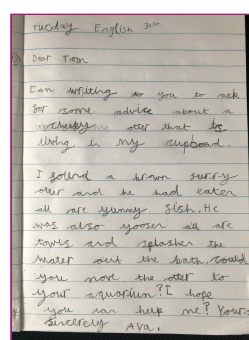 Tuesday English
Dear Tom
I am writing to you to ask
for some advice about a
otter that is
living in my cupboard.
I found a brown furry
otter and he had eaten
all are yummy fish. He
was also yoosen all are
towls and splasher the
water out the bath. could
you move the otter to
your aquarium? I hope
you can help me? Yours
sincerely Ava.